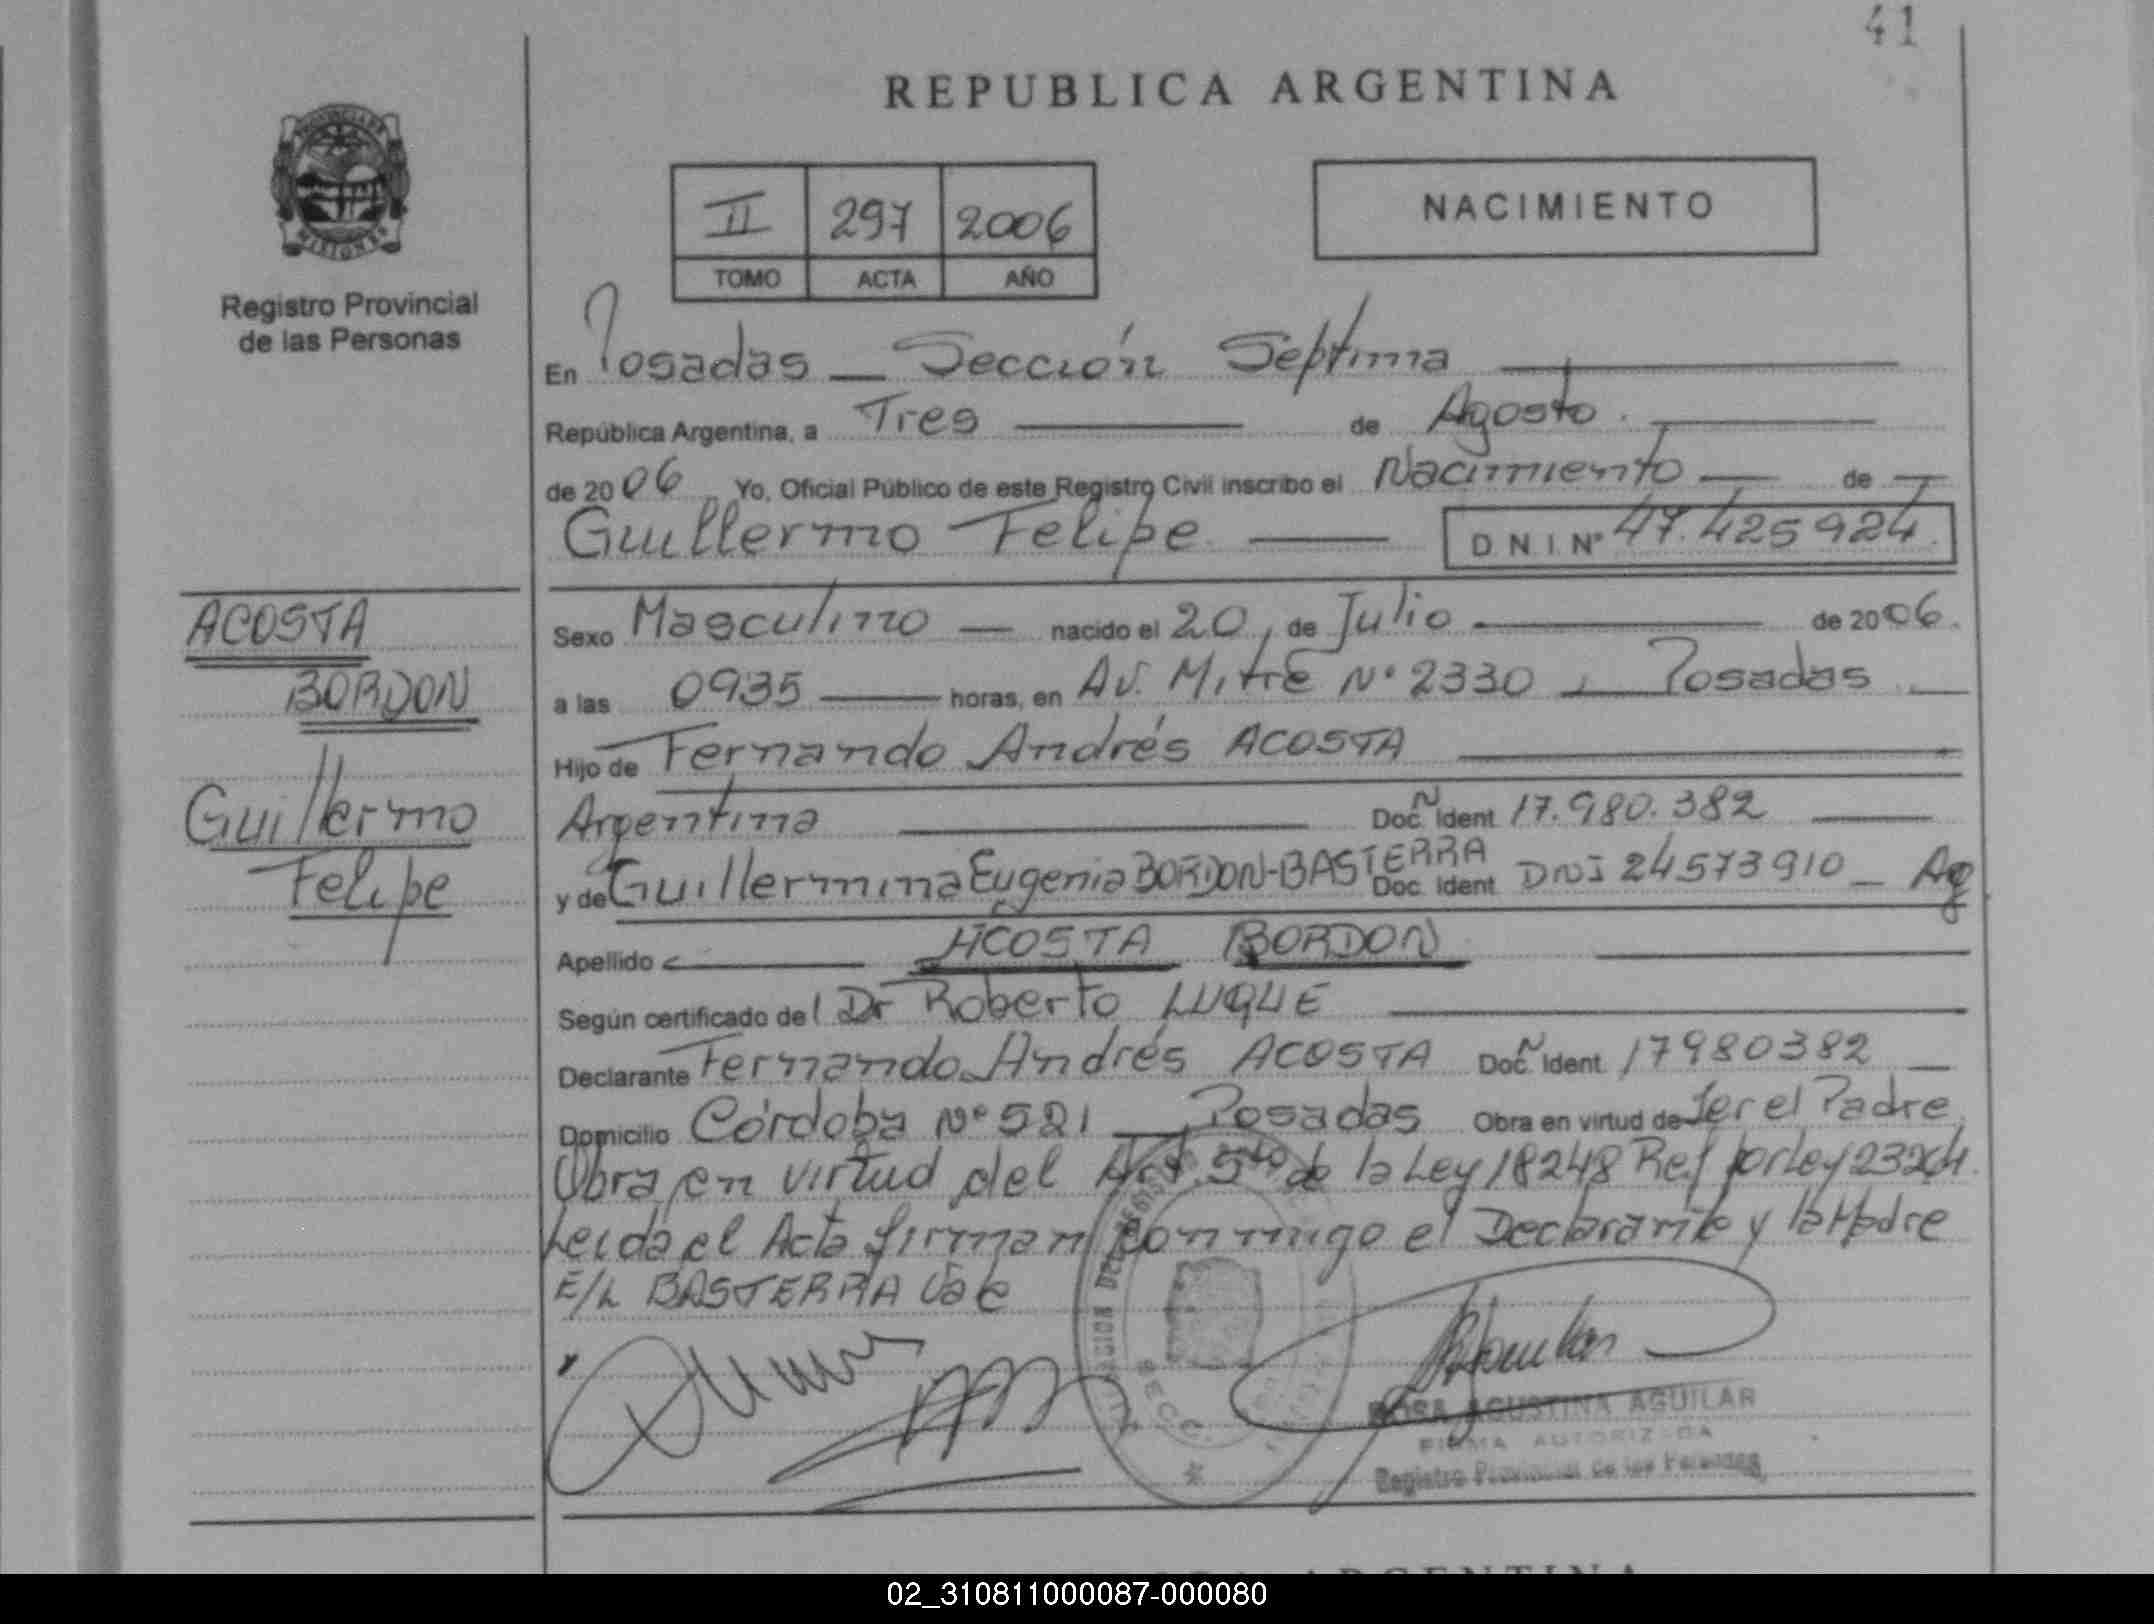 41
REPUBLICA ARGENTINA
II 297 2006
TOMO ACTA AÑO
NACIMIENTO
Registro Provincial
de las Personas
En Posadas _ Sección Séptima
República Argentina, a Tres de Agosto.
de 2006 Yo, Oficial Público de este Registro Civil inscribo el Nacimiento de
Guillermo Felipe D N I Nº 47.425924.
ACOSTA
BORDON
Guillermo
Felipe
Sexo Masculino nacido el 20, de Julio de 2006.
a las 0935 horas, en Av. Mitre Nº 2330, Posadas
Hijo de Fernando Andrés ACOSTA
Argentina Doc. Ident. 17.980.382
y de Guillermina Eugenia BORDON-BASTERRA Doc. Ident. DNI 24573910 _ Ag
Apellido ACOSTA BORDON
Según certificado del Dr Roberto LUQUE
Declarante Fernando Andrés ACOSTA Doc. Ident. 17980382
Domicilio Córdoba Nº 521 _ Posadas Obra en virtud de Ser el Padre
Obra en virtud del Art. 5to de la Ley 18248 Ref por Ley 23264.
Leída el Acta firman conmigo el Declarante y la Madre
E/L BASTERRA Vale
SECC.
ROSA AGUSTINA AGUILAR
FIRMA AUTORIZADA
Registro Provincial de las Personas
02_310811000087-000080